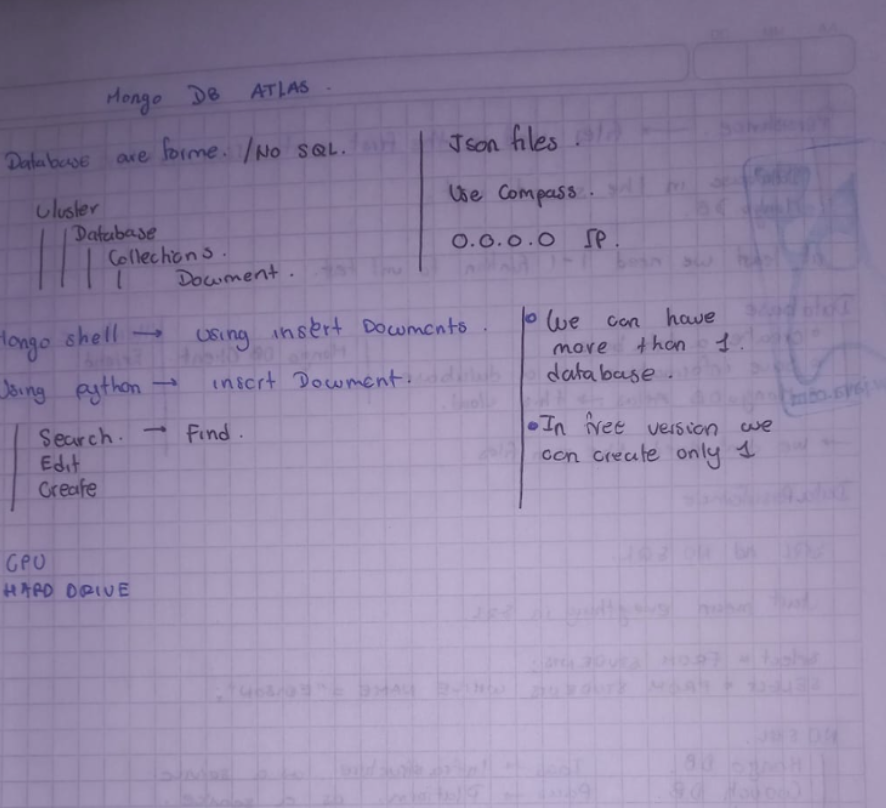 Mongo DB ATLAS.
Database are forme. / No SQL.
Cluster
Database
Collections.
Document.
Json files.
Use Compass.
0.0.0.0
Mongo shell → using insert Documents.
Using python → insert Document.
Search. → Find.
Edit
Create
We can have
more than 1.
database.
In free version we
can create only 1
CPU
HARD DRIVE